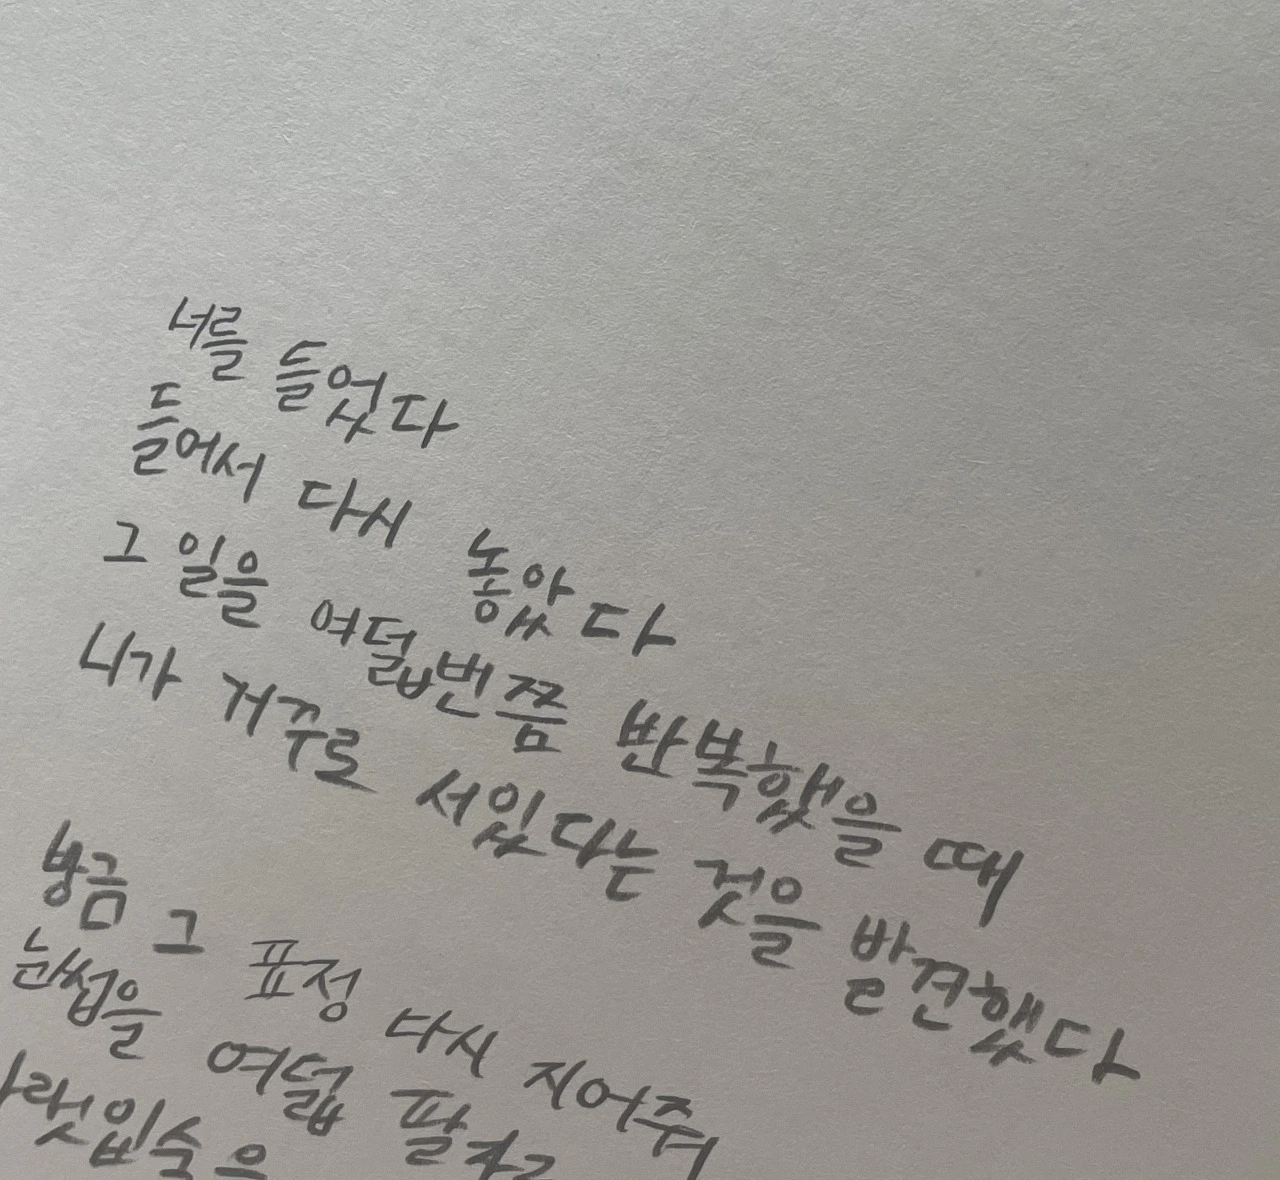 너를 들었다
들어서 다시 놓았다
그 일을 여덟번쯤 반복했을 때
니가 거꾸로 서있다는 것을 발견했다
방금 그 표정 다시 지어줘
눈썹을 여덟 팔자로
아랫입술을